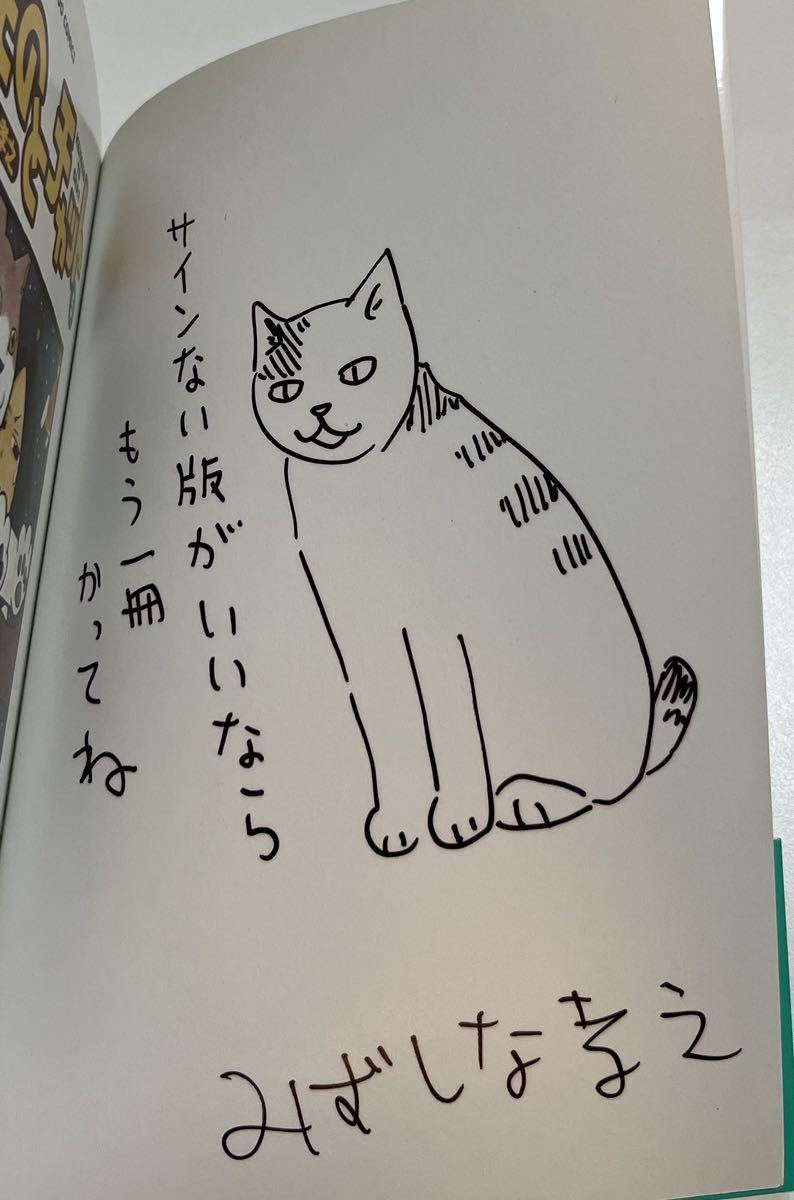 サインない版がいいなら
もう一冊
かってね
みずしな孝之